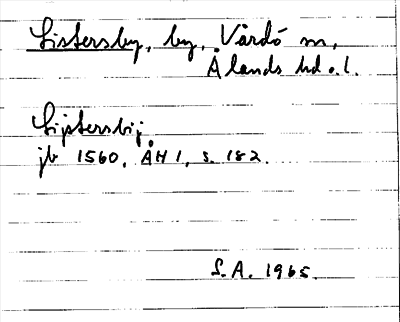 Listersby, by, Vårdö sn,
Ålands hd o. l.
Lijstersbij
jb 1560, ÅH 1, s. 182.
S.A. 1965.